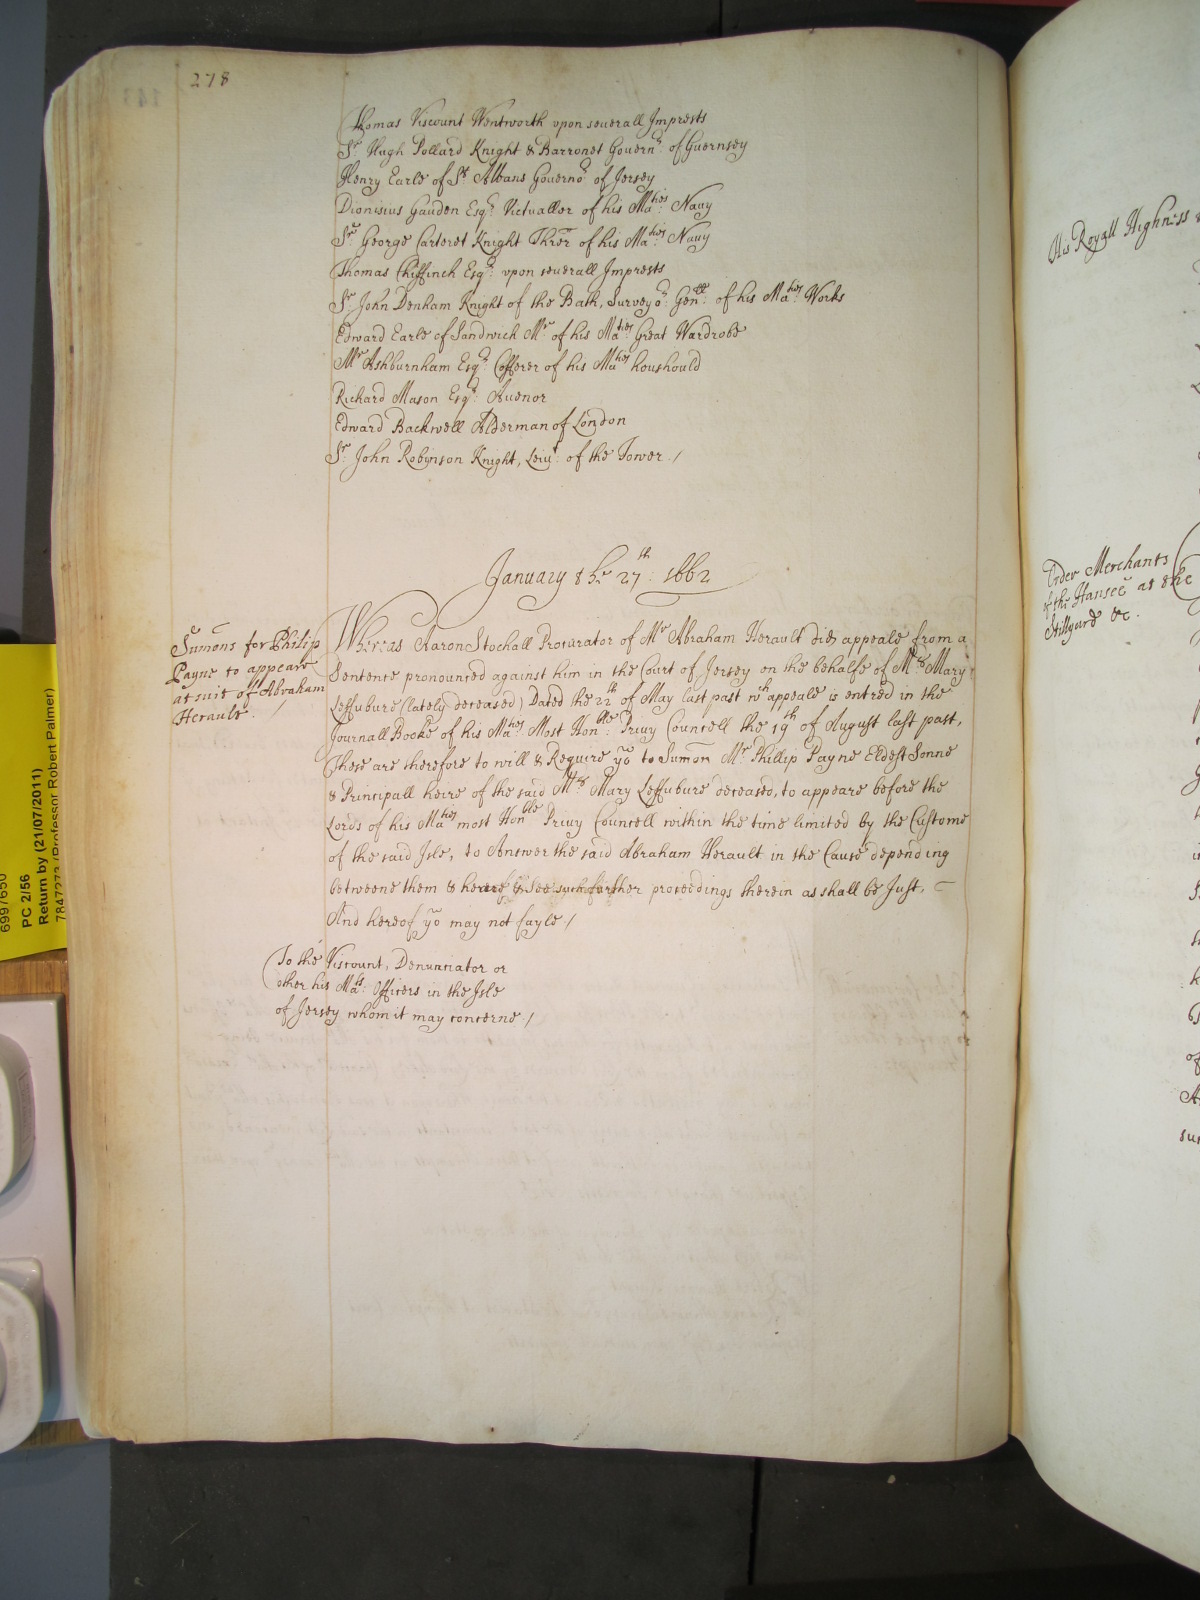 278
Thomas Viscount Wentworth vpon seuerall Imprests
Sr Hugh Pollard Knight & Barronet Gouernr: of Guernsey
Henry Earle of St Albans Gouernor of Jersey
Dionisius Gauden Esqr: Victualler of his Maties: Nauy
Sr George Carteret Knight Threr of his Maties: Nauy
Thomas Chiffinch Esqr: vpon seuerall Imprests
Sr John Denham Knight of the Bath, Surveyor: Genall: of his Maties: Works
Edward Earle of Sandwich Mr of his Maties Great Wardrobe
Mr Ashburnham Esqr: Cofferer of his Maties houshould
Richard Mason Esqr: Auenor
Edward Backwell Alderman of London
Sr John Robynson Knight, Leiut: of the Tower /
January the 27th: 1662
Sumons for Philip
Payne to appeare
at suit of Abraham
Herault. /
Whereas Aaron Stochall Procurator of Mr Abraham Herault did appeale from a
Sentence pronounced against him in the Court of Jersey on the behalfe of Mrs Mary
Leffubure (lately deceased) Dated the 22th of May last past wch appeale is entred in the
Journall Booke of his Maties Most Honble: Privy Councell the 19th of August last past,
These are therefore to will & Require yo to Sumon Mr Phillip Payne Eldest Sonne
& Principall heire of the said Mrs Mary Leffubure deceased, to appeare before the
Lords of his Maties most Honble Privy Councell within the time limited by the Custome
of the said Isle, to Answer the said Abraham Herault in the Cause depending
betweene them & heare & See such further proceedings therein as shall be Just,
And hereof yo may not fayle /
To the Viscount, Denunciator or
other his Mats: Officers in the Isle
of Jersey whom it may concerne /
His Royall Highness
Order Merchants
of the Hansee at the
Stillyard &c.
PC 2/56
Return by (21/07/2011)
(Professor Robert Palmer)